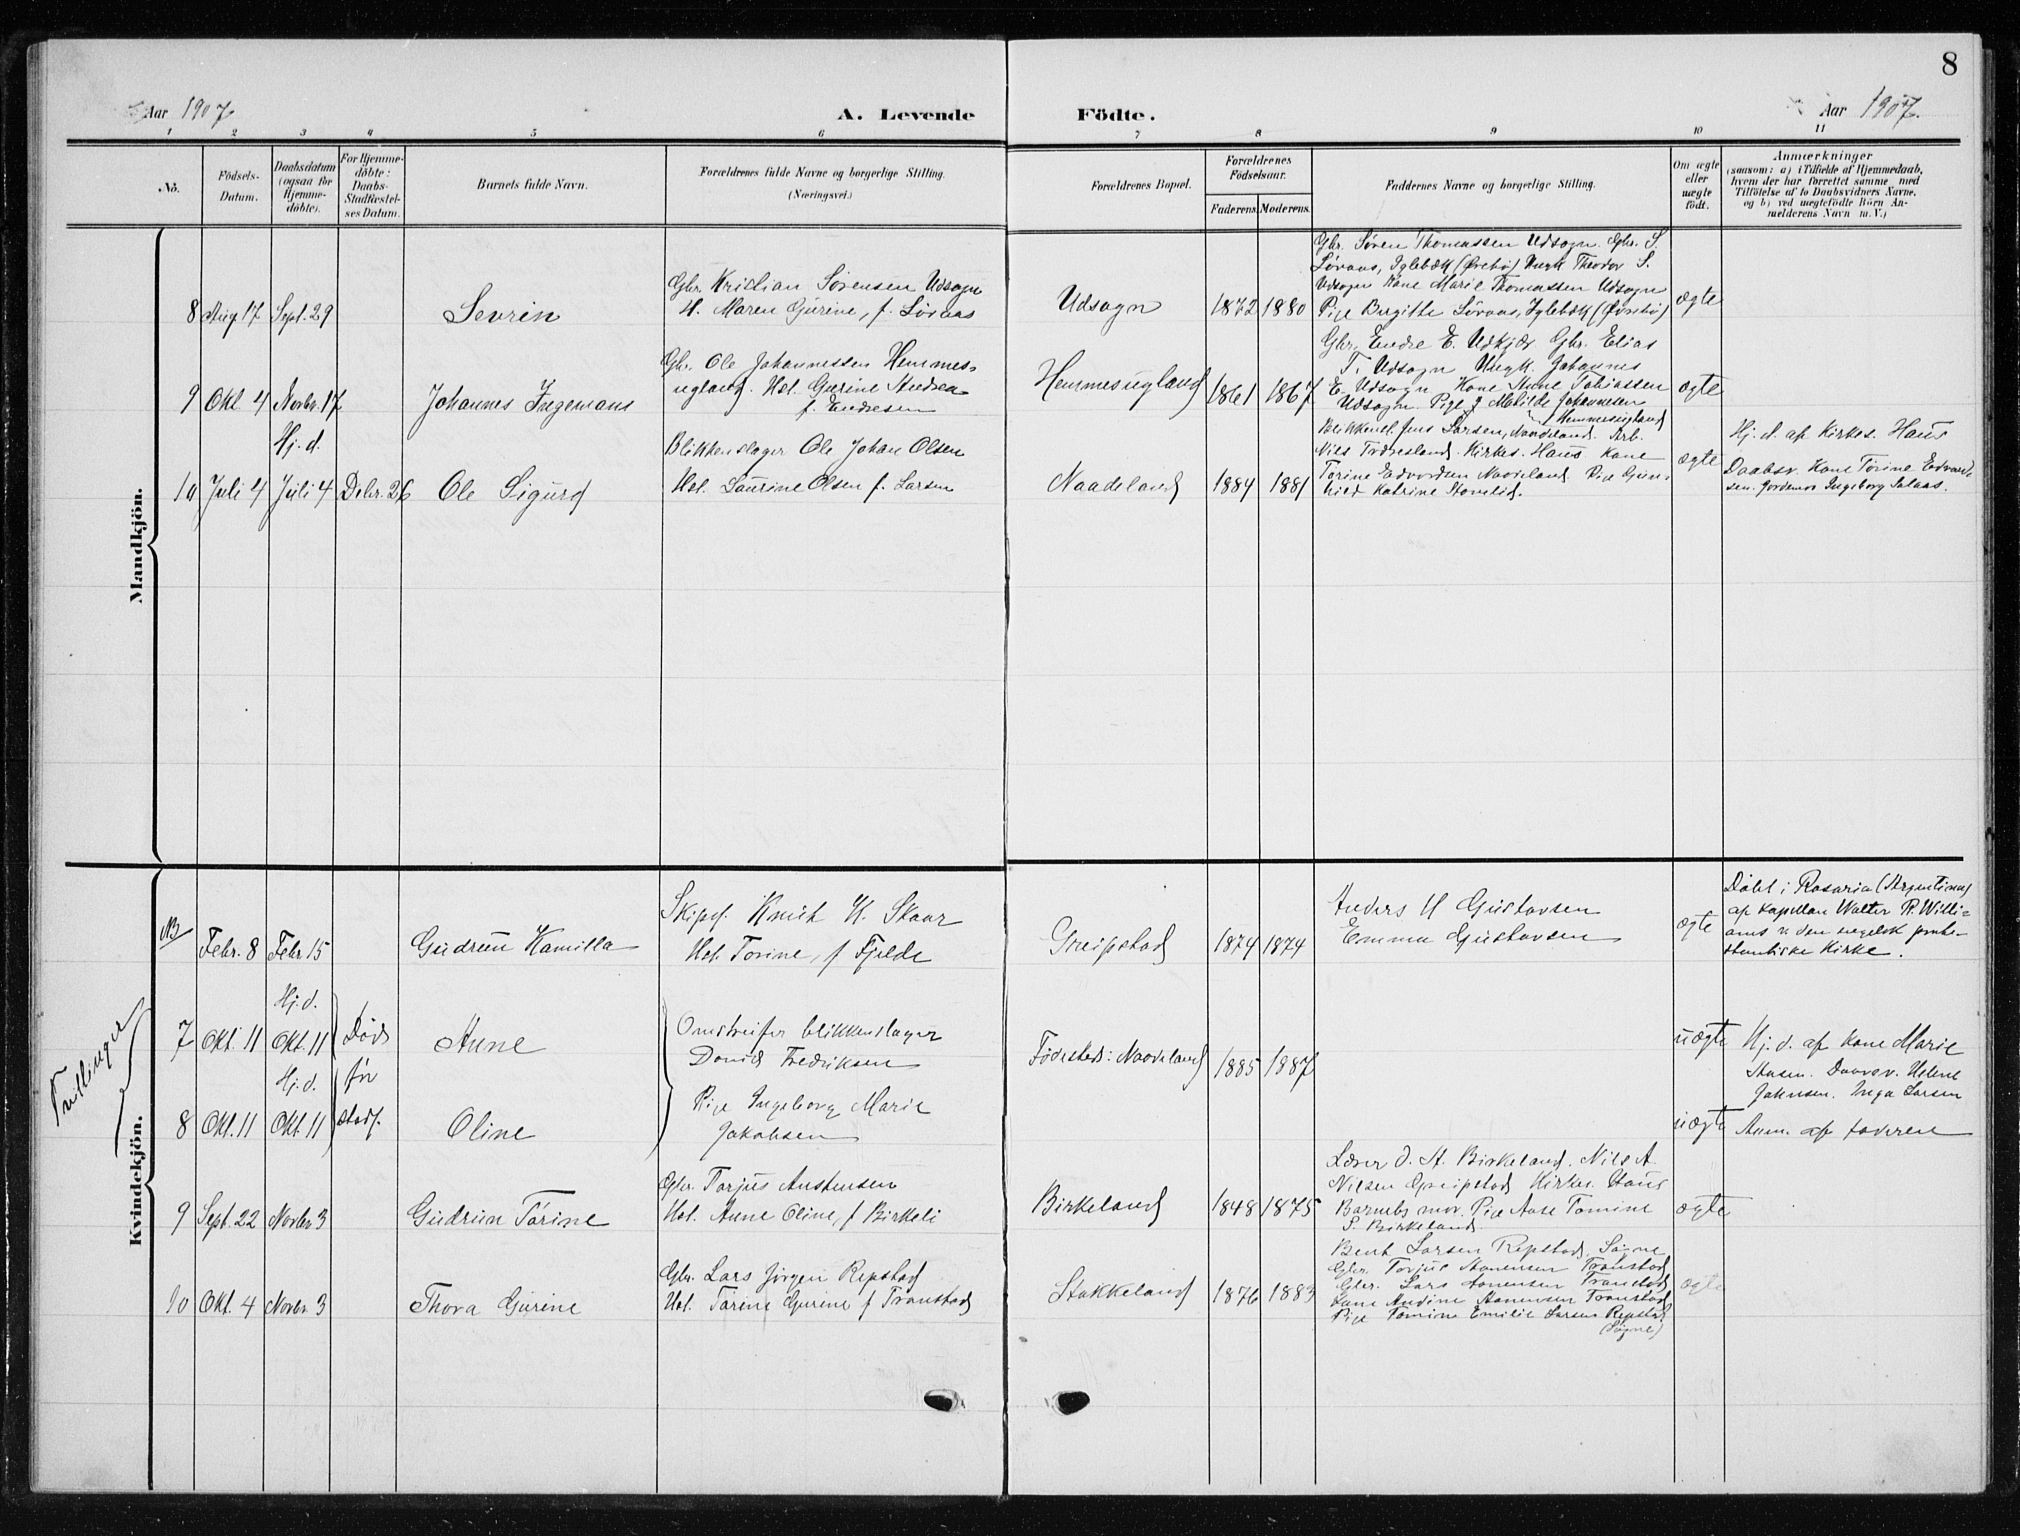 8
Aar 1907
A. Levende
Födte.
Aar 1907.
1 2 3 4 5 6 7 8 9 10 11
No.
Födsels-
Datum.
Daabsdatum
(ogsaa for
Hjemme-
döbte).
For Hjemme-
döbte:
Daabs-
Stadfestel-
ses Datum.
Barnets fulde Navn.
Forældrenes fulde Navne og borgerlige Stilling.
(Næringsvei.)
Forældrenes Bopæl.
Forældrenes
Födselsaar.
Faderens. Moderens.
Faddernes Navne og borgerlige Stilling.
Om ægte
eller
uægte
födt.
Anmærkninger
(saasom: a) i Tilfælde af Hjemmedaab,
hvem der har forrettet samme med
Tilföielse af to Daabsvidners Navne,
og b) ved uægtefödte Börn An-
melderens Navn m. V.)
Mandkjön.
8 Aug 17 Sept. 29
Sevrin
Gbr. Kristian Sørensen Udsogn
H. Maren Gurine, f. Løvaas
Udsogn
1872 1880
Gbr. Søren Thomassen Udsogn. Gbr. S.
Løvaas, Iglebæk (Øvrebø) Ungk Theodor S.
Udsogn Kone Marie Thomassen Udsogn
Pige Birgitte Løvaas, Iglebæk (Øvrebø)
ægte
9 Okt. 4 Novbr. 17
Johannes Ingemans
Gbr. Ole Johannessen Hemmes-
ugland. Hst. Gurine Andrea
f. Endresen
Hemmesugland
1861 1867
Gbr. Endre E. Udkjær Gbr. Elias
T. Udsogn Ungk. Johannis
E. Udsogn Kone Anne Tobiassen
Udsogn. Pige J Matilde Johannesen
Hemmesugland
ægte
Hj. d.
10 Juli 4 Juli 4 Debr. 26
Ole Sigurd
Blikkenslager Ole Johan Olsen
Hst. Laurine Olsen f. Larsen
Naadeland
1884 1881
Blikkensl. Jens Larsen, Naadeland. Arb.
Nils Trædesland. Kirkes. Haus Kone
Torine Edvardsen Naadeland. Pige Gun-
hild Katrine Stovelid.
ægte
Hj. d. af Kirkes. Haus
Daabsv. Kone Torine Edvard-
sen. Jordemor Ingeborg Salaas.
Kvindekjön.
NB
Febr. 8 Febr 15
Gudrun Kamilla
Skipsf. Knut K. Skaar
Hst. Torine, f Fjelde
Greipstad
1874 1874
Anders H Gustavsen
Emma Gustavsen
ægte
Døbt i Rosario (Argentina)
af Kapellan Walter R. Willi-
ams v den engelsk prote-
stantiske Kirke.
Tvillinger
Hj. d.
7 Okt. 11 Okt. 11
Død
før
stadf.
Anne
Omstreifer blikkenslager
David Fredriksen
Pige Ingeborg Marie
Jakobsen
Fødested: Naadeland
1885 1887
uægte
Hj. d. af Kone Marie
Daabsv. Helene
Jakobsen. Inga Larsen
Hj. d.
8 Okt. 11 Okt. 11
Oline
uægte
Anm. af faderen
9 Sept. 22 Novbr. 3
Gudrun Torine
Gbr. Torjus Austensen
Hst. Anne Oline, f Birkeli
Birkeland
1848 1875
Lærer O. A. Birkeland. Nils A.
Nilsen Greipstad Kirkes. Haus
Barnets mor. Pige Aase Tomine
S. Birkeland.
ægte
10 Okt. 4 Novbr. 3
Thora Gurine
Gbr. Lars Jørgen Repstad
Hst. Tarine Gurine f Tronstad
Stokkeland
1876 1883
Bent Larsen Repstad, Søgne
Gbr. Torjus Aanensen Tronstad
Gbr. Lars Aanensen Tronstad
Kone Andine Aanensen Tronstad
Pige Tomine Emilie Larsen Repstad
(Søgne)
ægte